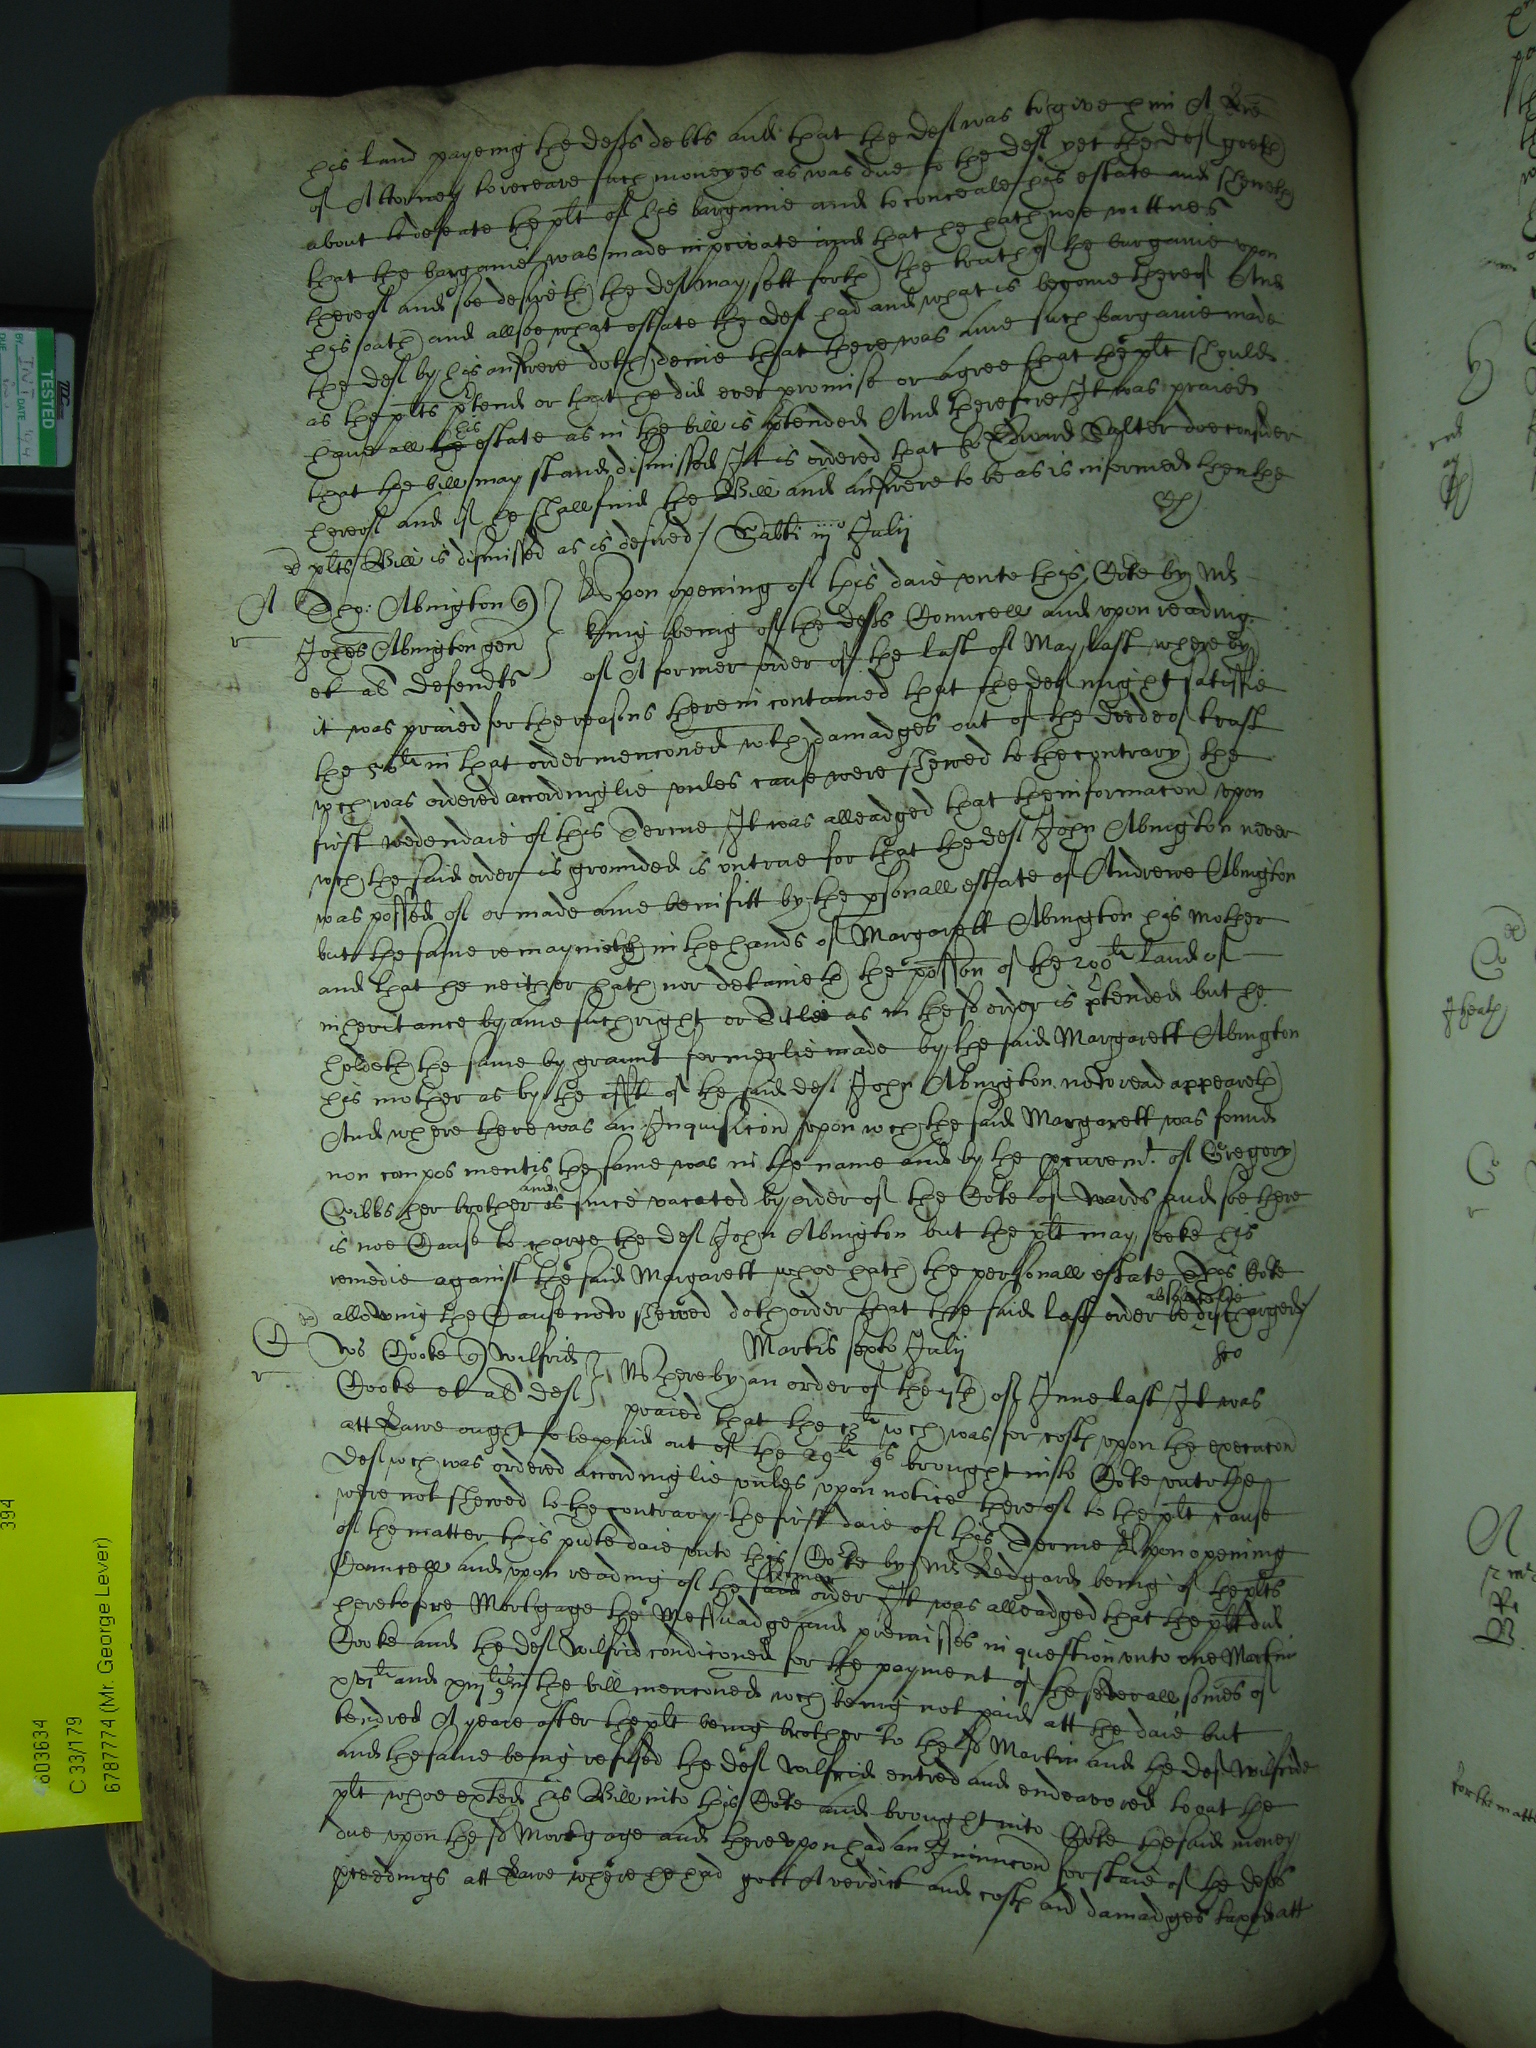 his land payeing the defts debts and that the deft was to give him A Lre
of Attorney to receave such moneyes as was due to the deft yet the deft goeth
about to defeate the plt of his bargaine and to conceale his estate and sheweth
that the bargaine was made in private and that he hath noe wittnes
thereof and soe desireth the deft may sett forth the truth of the bargaine upon
his oath and allsoe what estate the deft had and what is become thereof And
the deft by his answere doth denie that there was anie such bargaine made
as the plts ptend or that he did ever promise or agree that the plt should
have all the his estate as in the bill is ptended And therefore It was praied
that the bill may stand dismissed It is ordered that Sr Edward Salter doe consider
hereof and if he shall find the Bill and answere to be as is informed then the
plts Bill is dismissed as is desired / Sabti iijo Julij
A
Tho: Abington
Johes Abington gen
et al defendts
Upon opening of this daie unto this Cote by Mr
King being of the defts Councell and upon reading
of A former order of the last of May last whereby
it was praied for the reasons therein contained that the deft might satisfie
the 56li in that order menconed wth damadges out of the deede of trust
wch was ordered accordinglie unles cause were shewed to the contrary the
first wedendaie of this Terme It was alleadged that the informacon upon
wch the said order is grounded is untrue for that the deft John Abington never
was possed of or made anie benifitt by the psonall estate of Andrewe Abington
but the same remayneth in the hands of Margarett Abington his mother
and that he neither hath nor detaineth the possion of the 200li land of
inheritance by anie such right or Title as in the sd order is ptended but he
holdeth the same by graunt formerlie made by the said Margarett Abington
his mother as by the afft of the said deft John Abington now read appeareth
And where there was an Inquisicon upon wch the said Margarett was found
non compos mentis the same was in the name and by the pcuremt of Gregory
Gibbs her brother and is since vacated by order of the Cote of wards and soe there
is noe Cause to charge the deft John Abington but the plt may seeke his
remedie against the said Margarett whoe hath the personall estate This Cote
allowing the Cause now shewed doth order that the said last order be absolutelie discharged /
C
Ws Cooke Wilfrid
Cooke et al deft
Martis sexto Julij
Whereby an order of the 7th of June last It was
praied that the 13li wch was for costs upon the execucon
att Lawe ought to be paid out of the 29li 9s brought into Cote unto the
deft wch was ordered accordinglie unles upon notice thereof to the plt cause
were not shewed to the contrary the first daie of this Terme Upon opening
of the matter this pnte daie unto this Cote by Mr Ledgard being of the plts
Councell and upon reading of the said former order It was alleadged that the plt did
heretofore Mortgage the Messuadge and premisses in question unto one Martin
Cooke and the deft Wilfrid condiconed for the payment of the severall somes of
xvjli and xiijli 9s in the bill menconed wch being not paid att the daie but
tendred A yeare after the plt being brother to the sd Martin and the deft Wilfride
and the same being refused the deft Wilfrid entred and endeavored to oat the
plt whoe exhted his Bill into this Cote and brought into Cote the said money
due upon the sd Mortgage and thereupon had an Iniuncon for staie of the defts
pceedings att Lawe where he had gott A verdict and costs and damadges taxed att
TESTED
BY
DATE
DUE
394
603634
C 33/179
6787774 (Mr. George Lever)